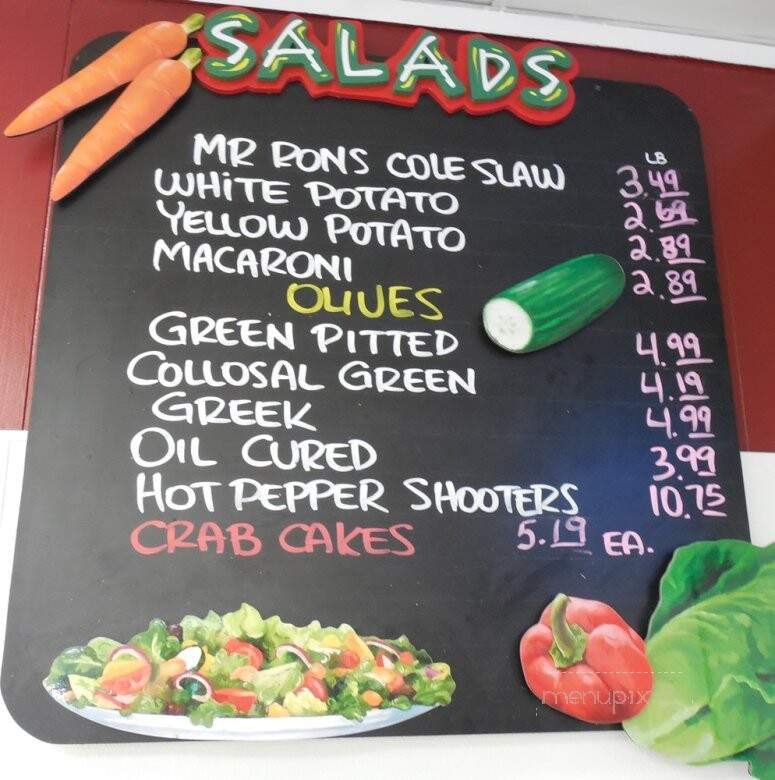 SALADS
LB
MR RONS COLE SLAW 3.49
WHITE POTATO 2.69
YELLOW POTATO 2.89
MACARONI 2.89
OLIVES
GREEN PITTED 4.99
COLLOSAL GREEN 4.19
GREEK 4.99
OIL CURED 3.99
HOT PEPPER SHOOTERS 10.75
CRAB CAKES 5.19 EA.
menupix